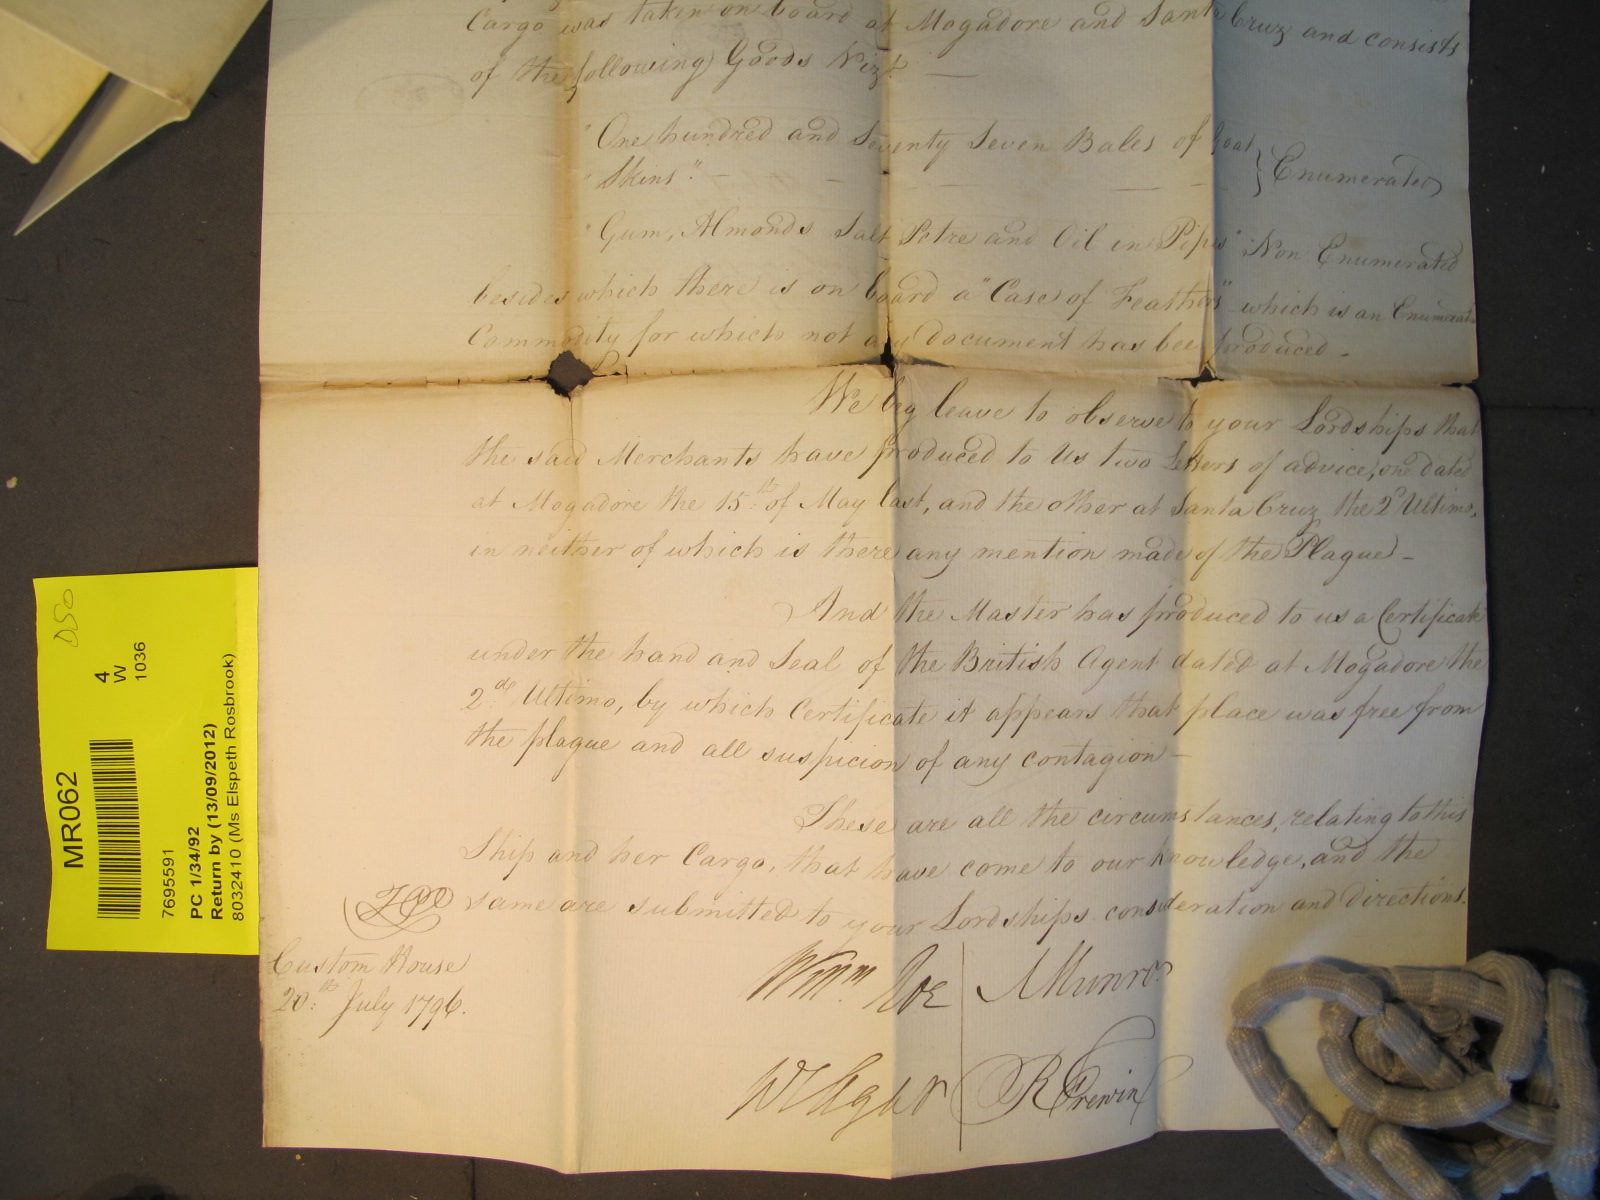 Cargo was taken on board at Mogadore and Santa Cruz and consists
of the following Goods Vizt.
"One hundred and Seventy Seven Bales of Goat
"Skins" Enumerated
"Gum, Almonds Salt Petre and Oil in Pipes" Non Enumerated
besides which there is on board a "Case of Feathers" which is an Enumerated
Commodity for which not any document has been produced
We beg leave to observe to your Lordships that
the said Merchants have produced to Us two Letters of advice, one dated
at Mogadore the 15th of May last, and the other at Santa Cruz the 2d Ultimo,
in neither of which is there any mention made of the Plague
And the Master has produced to us a Certificate
under the hand and Seal of the British Agent dated at Mogadore the
2d Ultimo, by which Certificate it appears that place was free from
the plague and all suspicion of any contagion
These are all the circumstances, relating to this
Ship and her Cargo, that have come to our knowledge, and the
same are submitted to your Lordships consideration and directions.
Custom House
20th July 1796.
Willm Roe
A Munro
R Frewin
D50
MR062
4
W
1036
7695591
PC 1/34/92
Return by (13/09/2012)
8032410 (Ms Elspeth Rosbrook)